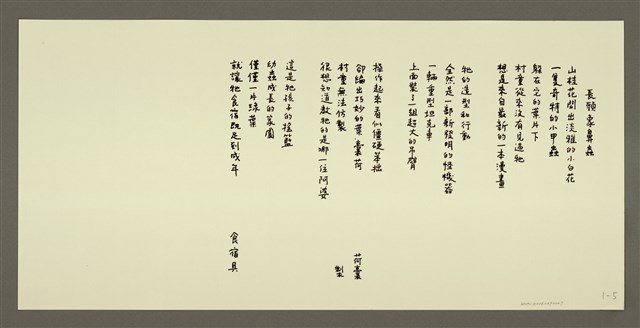 長頸象鼻蟲
山枝花開出淡雅的小白花
一隻奇特的小甲蟲
躲在之的葉片下
村童從來沒有見過牠
想是來自最新的一本漫畫
牠的造型和行動
全然是一部新發明的怪機器
一輛重型坦克車
上面裝了一組超大的吊臂
操作起來看似僵硬笨拙
卻編出巧妙的葉囊荷
村童無法仿製
很想知道教牠的是哪一位阿婆
這是牠孩子的搖籃
幼蟲成長的家園
僅僅一片綠葉
就讓牠食宿既足到成年
荷囊
製
食宿具
1-5